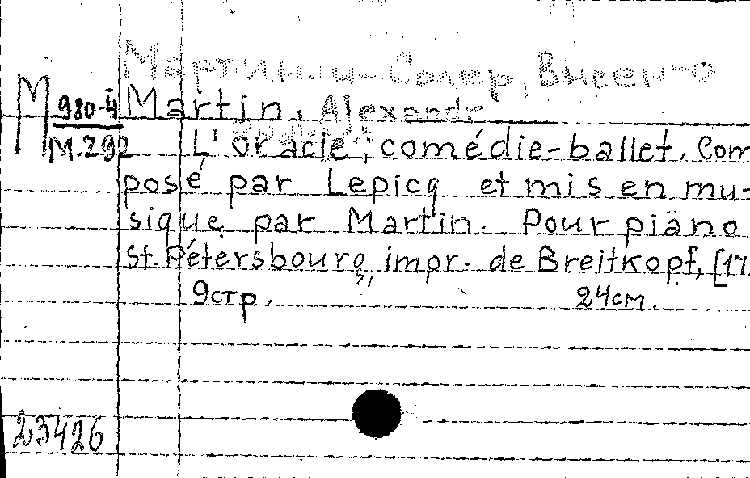 Мартини-Солер, Висенто
М 980-4 Martin, Alexandr
М.292 L'oracle, comédie-ballet. Com
posé par Lepicq et mis en mu-
sique par Martin. Pour piano
St. Pétersbourg, impr. de Breitkopf, [17
9стр. 24см.
23426